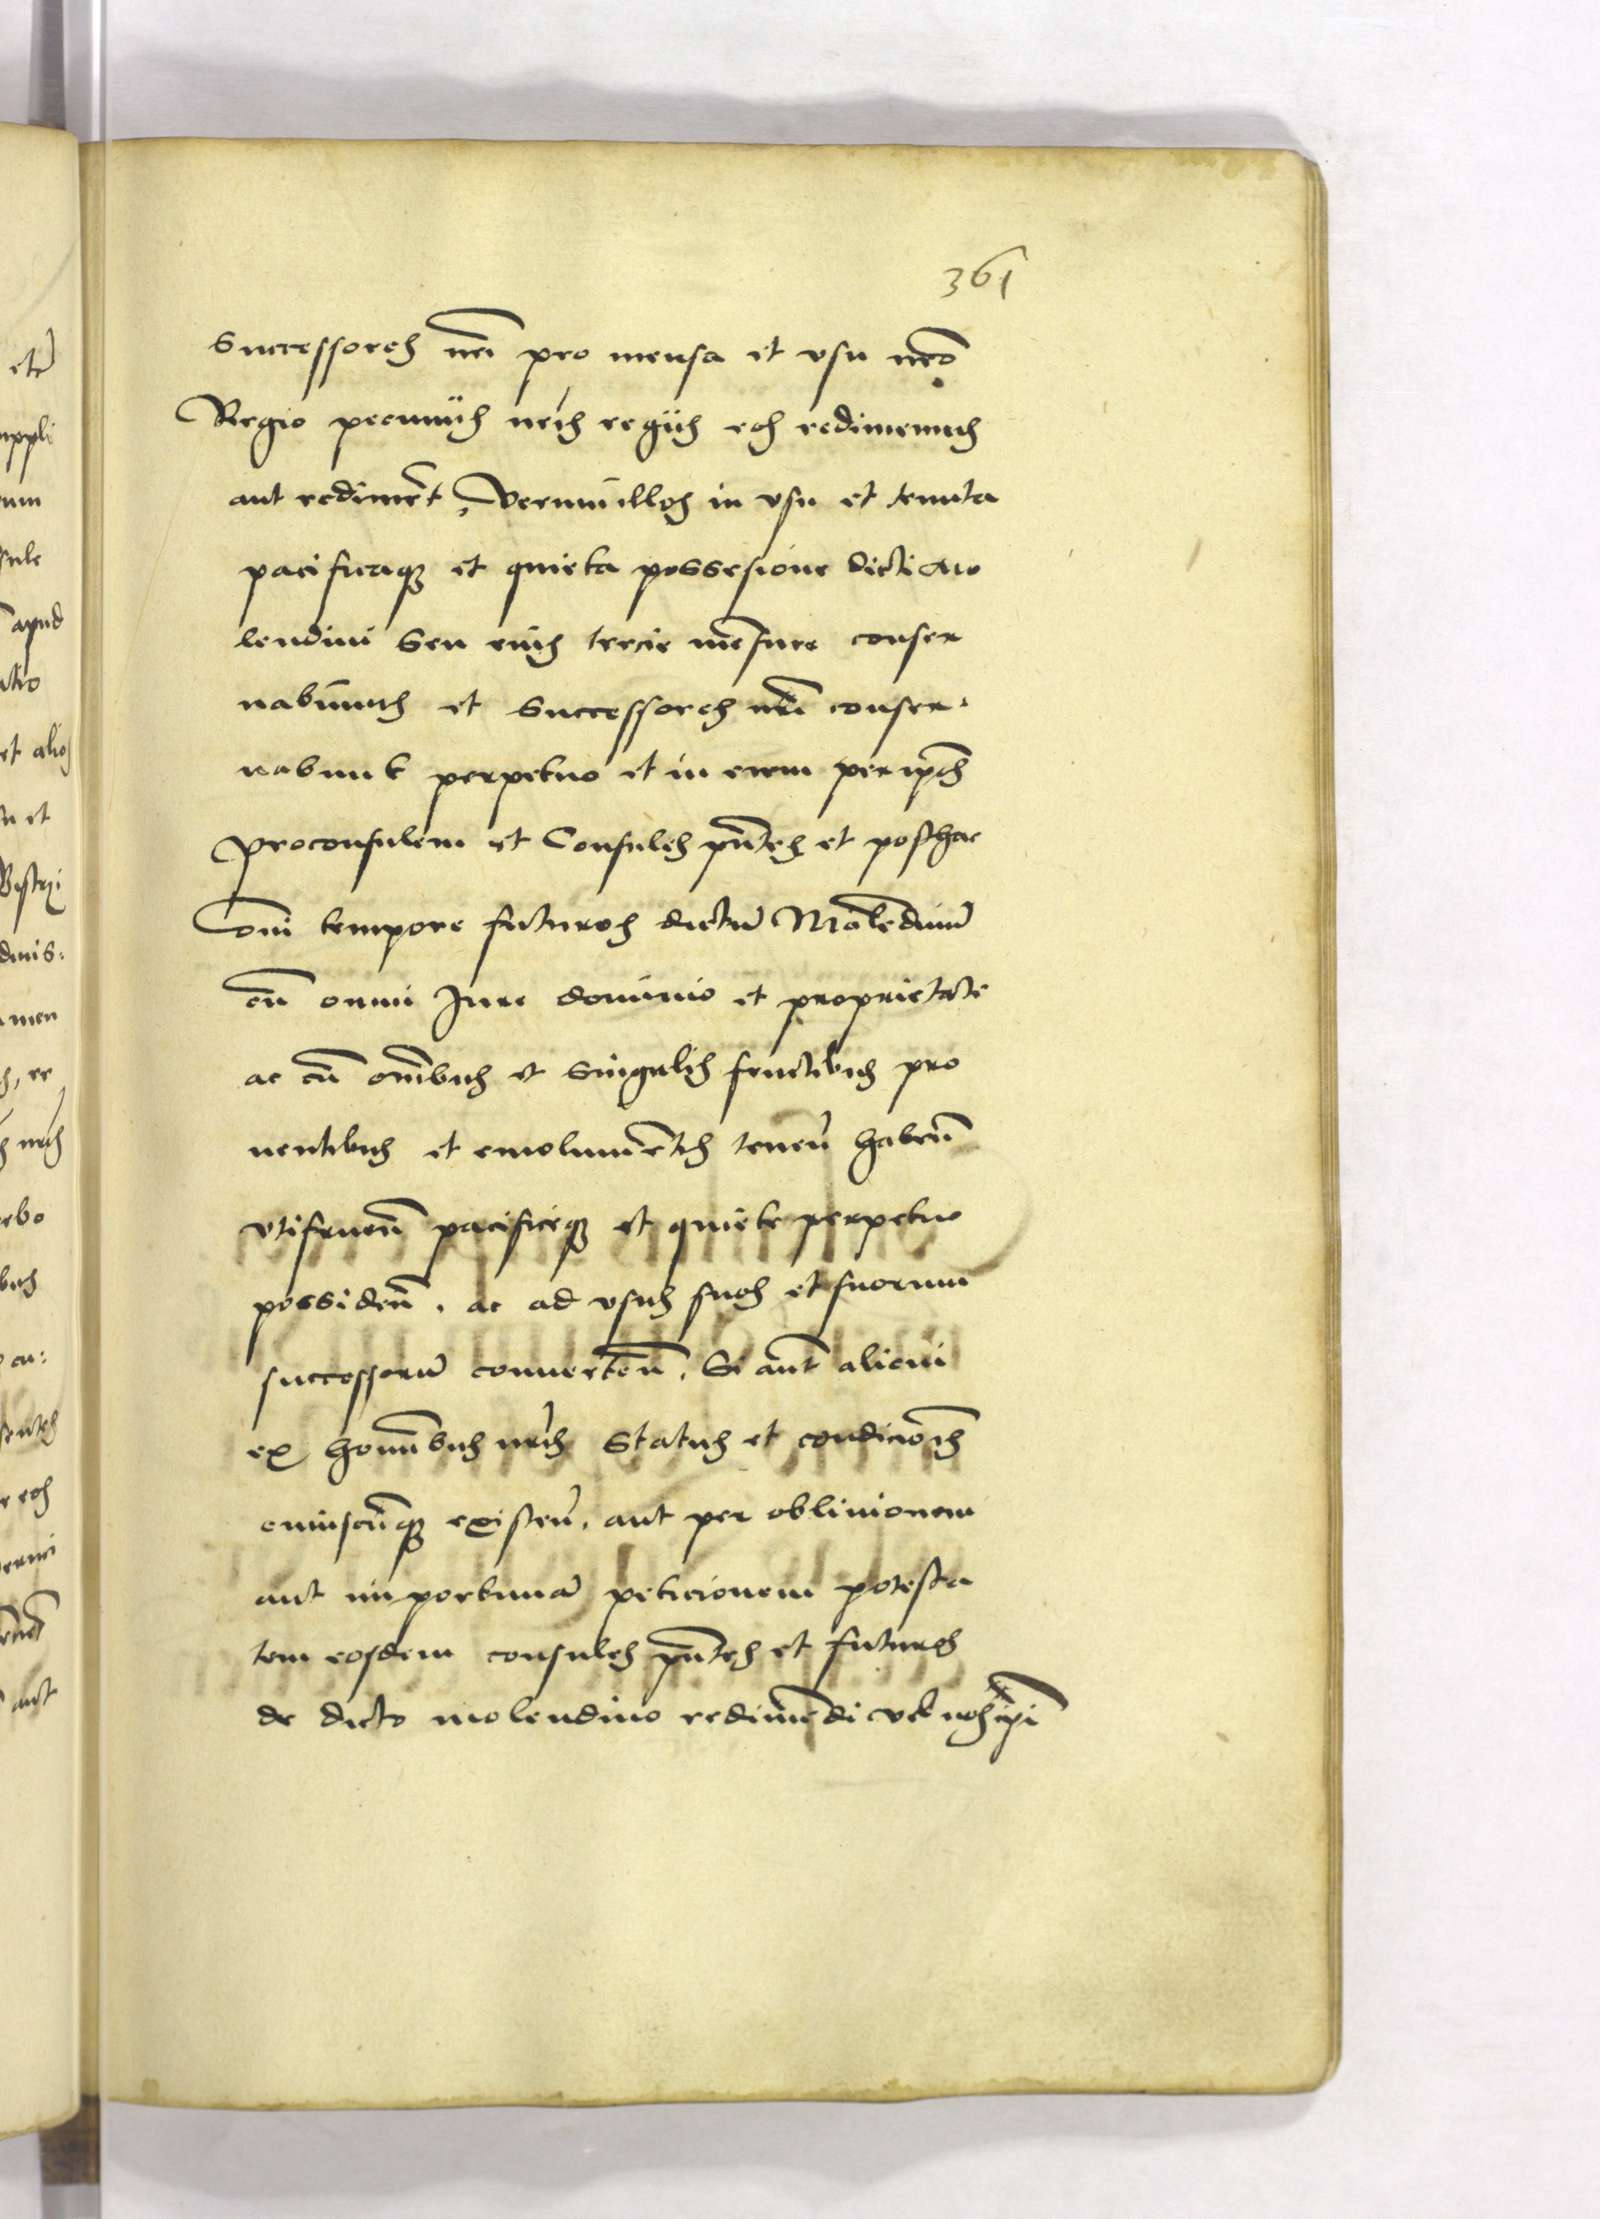 361
Successores nr̄i pro mensa et vsu nr̄o
Regio pecunijs nr̄is regijs eos redimemus
aut redimēt, Verum illos in vsu et tenuta
pacificaq; et quieta possesione dicti Mo
lendini Seu eius tercie mēsure conser
uabimus et Successores nr̄i conser
uabunt perpetuo et in euum per ip̄os
proconsulem et Consules pn̄tes et posthac
Om̄i tempore futuros dictū Molēdinū
cū omni Jure dominio et proprietate
ac cū om̄ibus et Singulis fructibus pro
uentibus et emolumētis teneñ habeñ
vtifrueñ pacificeq; et quiete perpetuo
possideñ. ac ad vsus suos et suorum
successorū conuerteñ. Si aūt alicui
ex homībus nr̄is Status et condicioīs
cuiuscūq; existeñ. aut per obliuionem
aut importunā peticionem potesta
tem eosdem consules pn̄tes et futuros
de dicto molendino redimēdi vel nos ip̄i